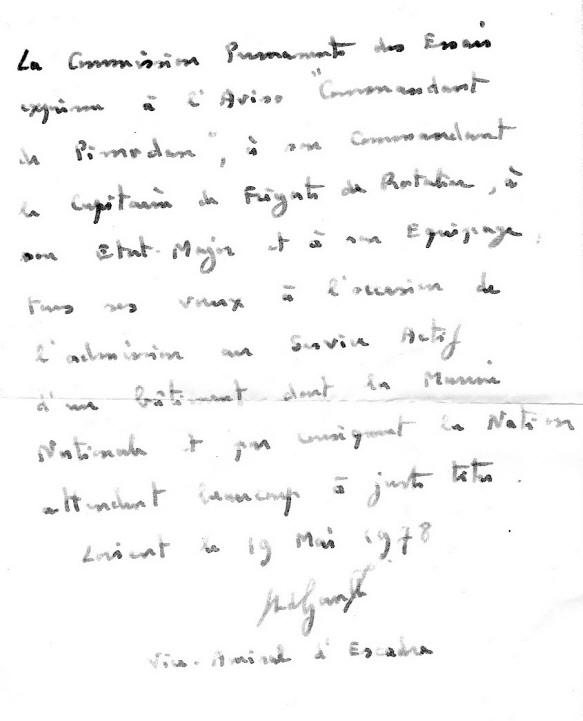 La Commission Permanente des Essais
exprime à l'Aviso "Commandant
de Pimodan", à son Commandant
le Capitaine de Frégate de , à
son Etat-Major et à son Equipage,
tous ses voeux à l'occasion de
l'admission au Service Actif
d'un bâtiment dont la Marine
Nationale et par conséquent la Nation
attendent beaucoup à juste titre.
Lorient le 19 Mai 1978
Vice-Amiral d'Escadre